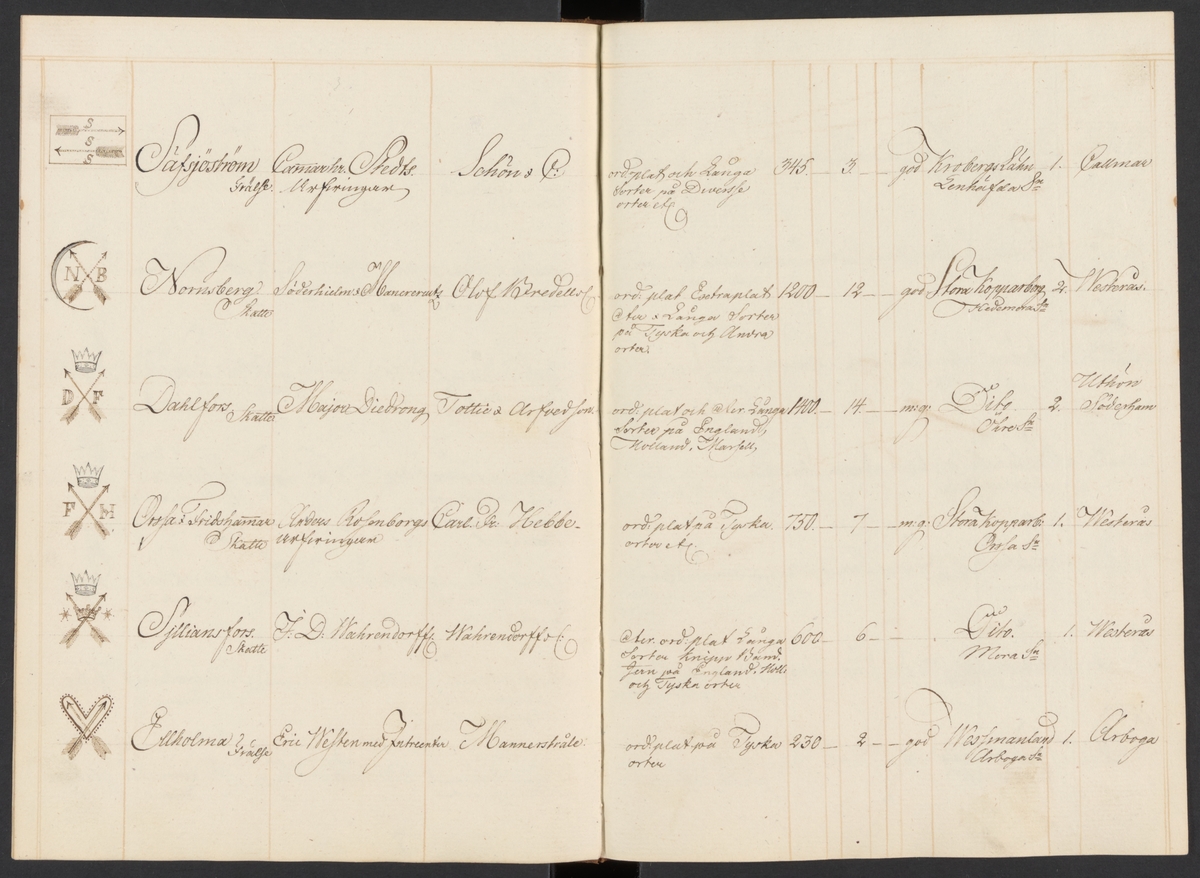 S
S
S
Säfsjöström Cammarhr. Stedts Schön & C: 345. 3. god Krobergs Lähn 1. Callmar
Frälse Arfvingar ord. plat och Långa Lenhäfda Sn
Sorter på Diverse
orter etc
N B
Nornsberg Söderhielm & Olof Wredells C ord. plat Extra plat 1200 12 god Stora Kopparberg 2. Westerås.
Skatte ster & Långa Sorter Hedemora Sn
på Tyska och Andra
orter.
Uthön
D F
Dahlfors Major Tottie & Arfvedson ord. plat och ster. Långa 1400 14 m:g: Dito. 2. Söderham
Skatte Sorter på England,
Holland, Marsell,
F H
Orssa & Fridshammar Anders Rosenborgs Carl Fr: Hebbe ord. plat på Tyska 750. 7 m:g: Stora Kopparb: 1. Westerås
Skatte Arfvingar orter etc. Orssa Sn
Silliansfors. J. D. Wahrendorff Wahrendorff & C: ster. ord. plat Långa 600 6 Dito. 1. Westerås
Skatte Sorter Knipp Band Mora Sn
Jern på England, Holl:
och Tyska orter
Ellholma Eric Westen med Intreenter Mannerstråle ord. plat på Tyska 230 2 god Westmanland 1. Arboga
Frälse orter Arboga Sn